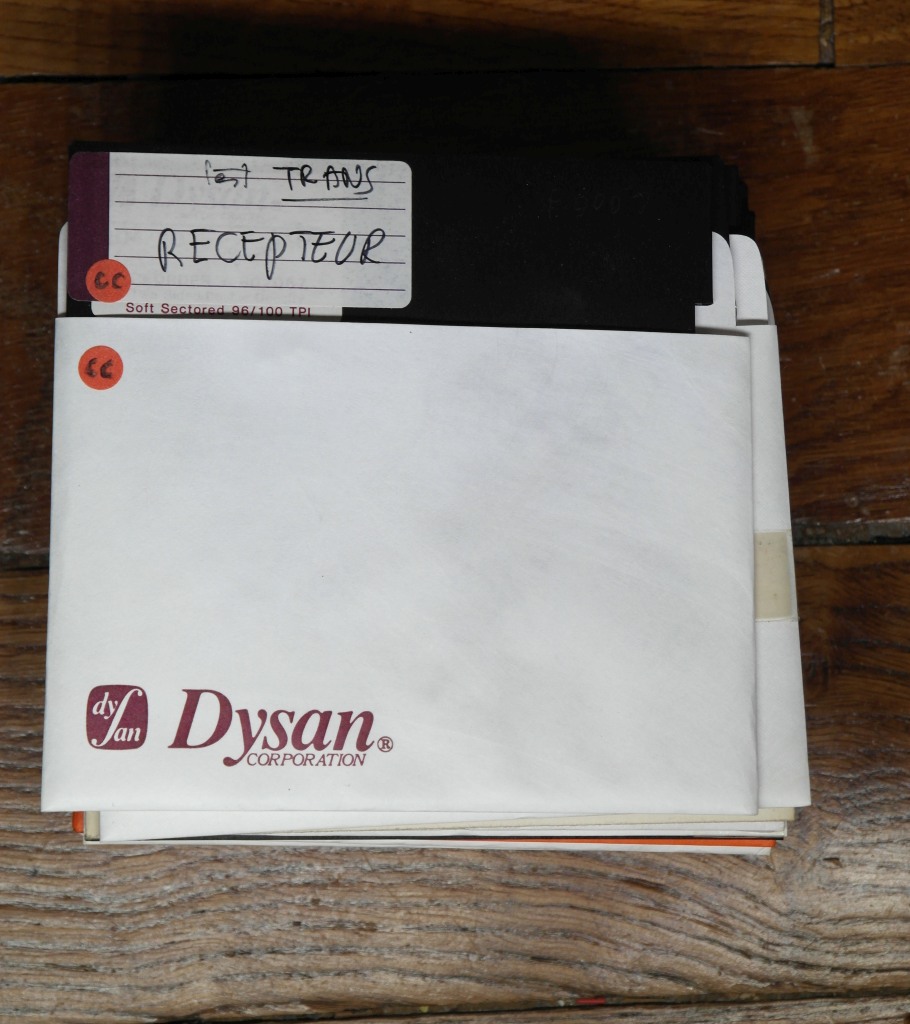 TRANS
RECEPTEUR
CC
Soft Sectored 96/100 TPI
CC
dysan
Dysan®
CORPORATION